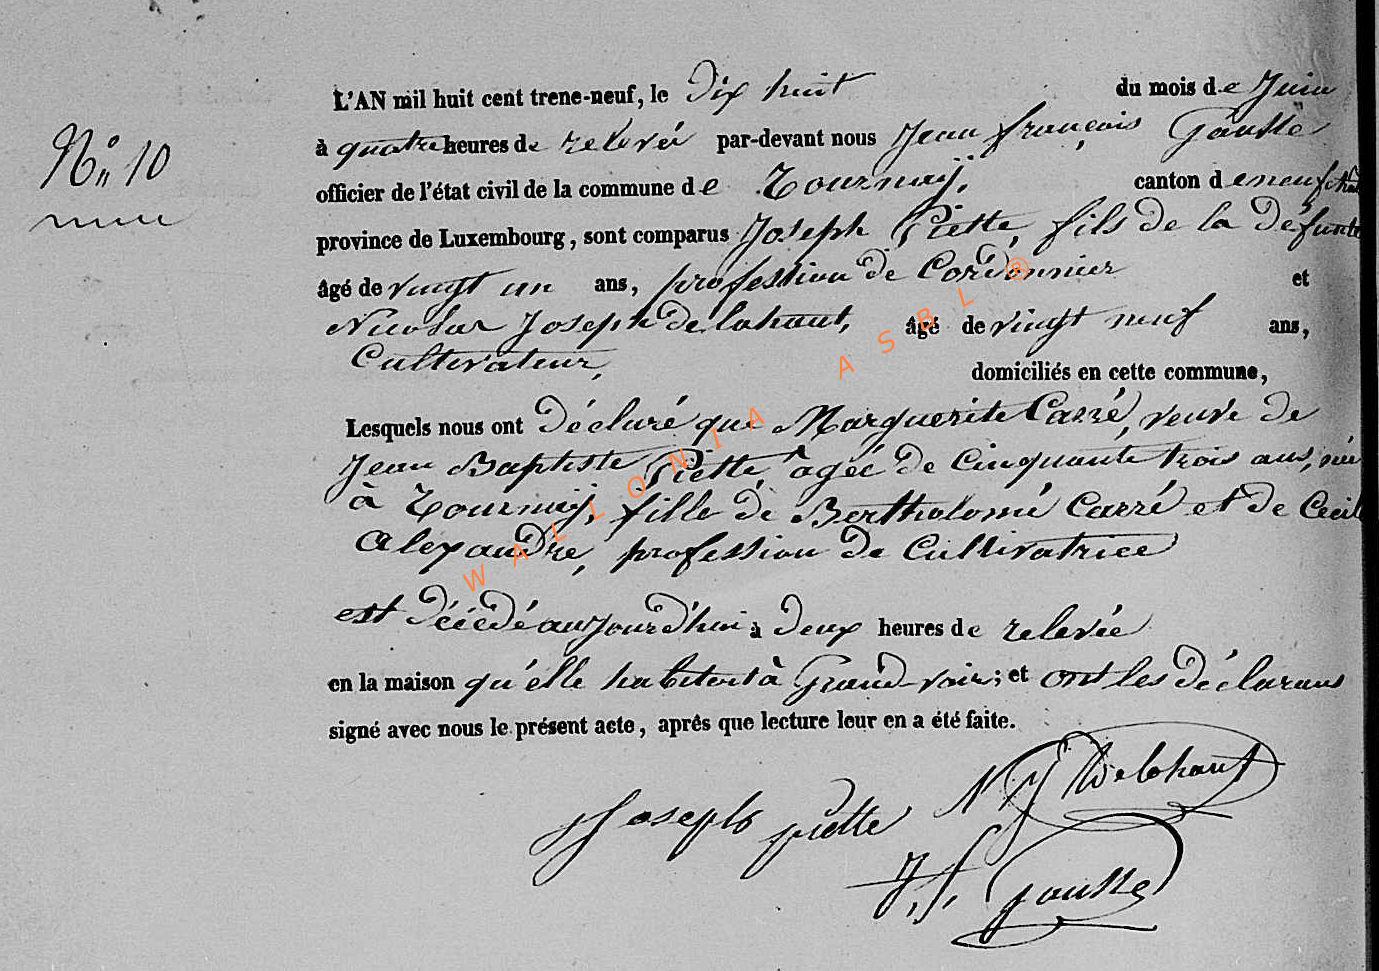 L'AN mil huit cent trene-neuf, le Dix huit du mois de Juin
N° 10
à quatre heures de relevée par-devant nous Jean françois Gousse
officier de l'état civil de la commune de Tournay, canton de neufchat
province de Luxembourg, sont comparus Joseph Piette, fils de la défunte
âgé de vingt un ans, profession de Cordonnier et
Nicolas Joseph Delahaut, âgé de vingt neuf ans,
Cultivateur, domiciliés en cette commune,
Lesquels nous ont déclaré que Marguerite Carré, veuve de
Jean Baptiste Piette, agée de cinquante trois ans, née
à Tournay, fille de Bertholomé Carré et de Cecil
Alexandre, profession de Cultivatrice
est décédé aujourd'hui à deux heures de relevée
en la maison qu'elle habitoit à Grand-voir; et ont les déclarans
signé avec nous le présent acte, après que lecture leur en a été faite.
Joseph piette N J Delahaut
J. f. Gousse
WALLONIA ASBL ®